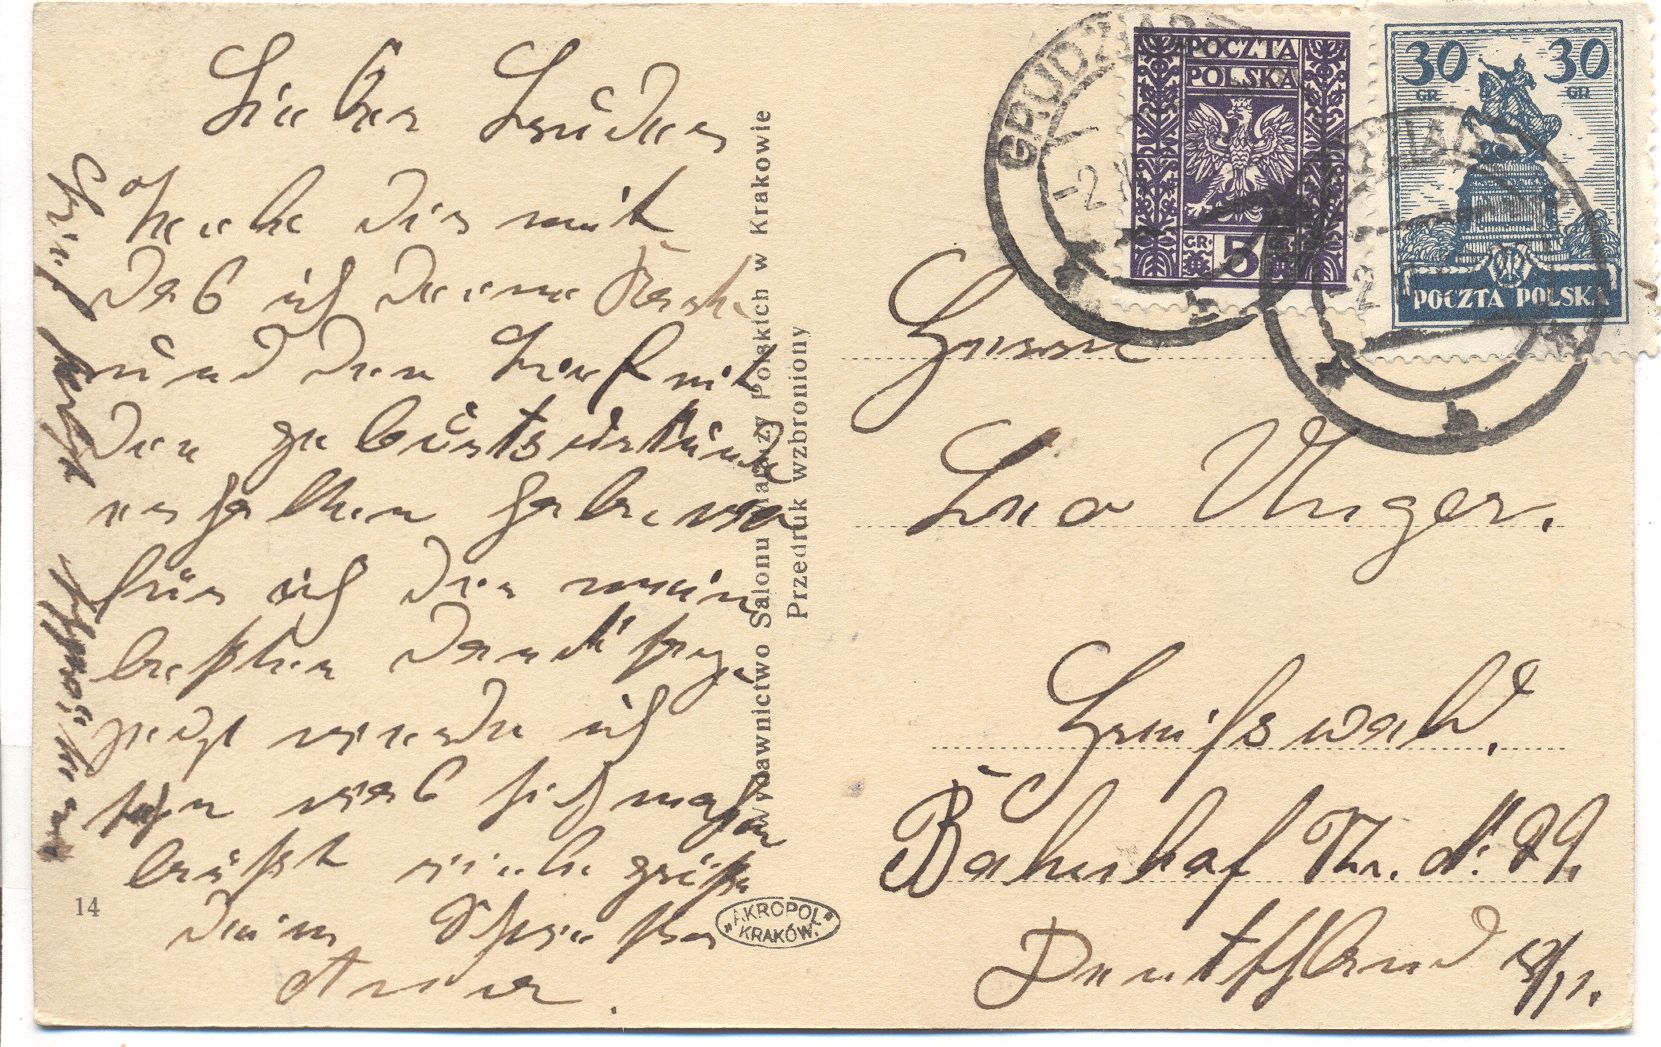 Lieber Bruder
Teile dir mit
daß ich deine Karte
und den Brief mit
den geburtsurkunde
erhalten habe wo
für ich dir mein
besten dank sage
jetzt werde ich
sehn was sich machen
läßt viele grüße
dein Schwester
Anna.
Wydawnictwo Salonu Malarzy Polskich w Krakowie
Przedruk wzbroniony
14
"AKROPOL"
KRAKÓW.
GRUDZIĄDZ
POCZTA
POLSKA
GR. 5 GR.
30 30
GR GR
POCZTA POLSKA
Herrn
Leo Unger.
Greifswald.
Bahnhof
Deutschland